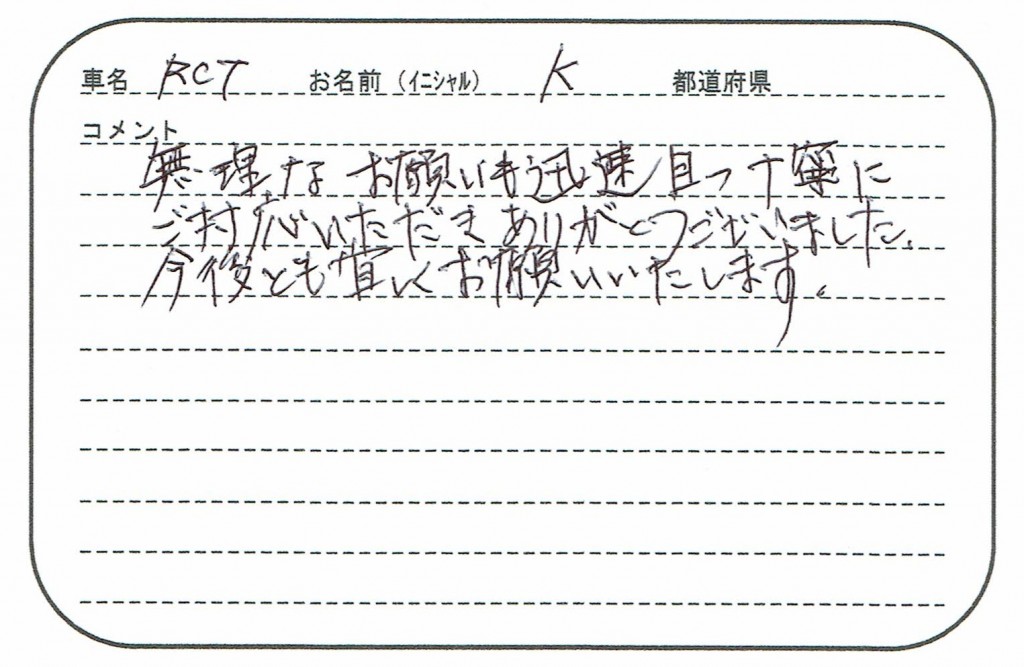 車名 RCT お名前（イニシャル） K 都道府県
コメント
無理なお願いも迅速且つ丁寧に
ご対応いただきありがとうございました.
今後とも宜しくお願いいたします。